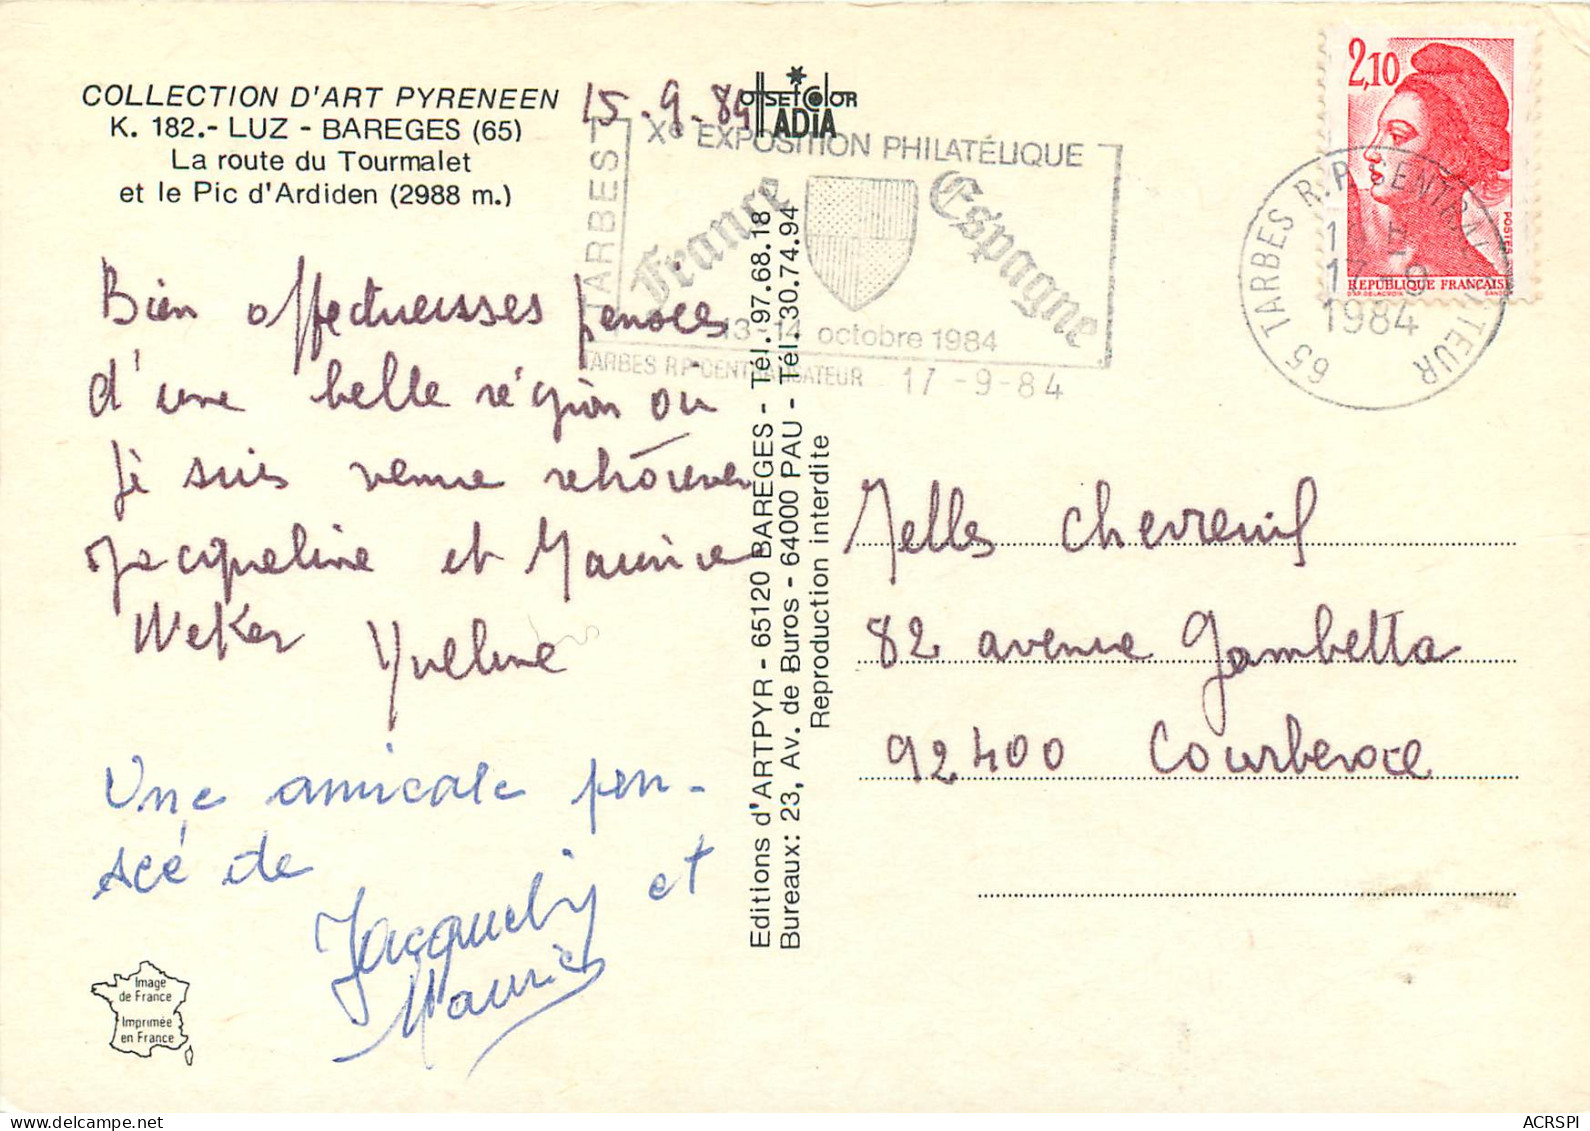 COLLECTION D'ART PYRENEEN
K. 182.- LUZ - BAREGES (65)
La route du Tourmalet
et le Pic d'Ardiden (2988 m.)
15-9-84
OffSETCOLOR
ADIA
TARBES
Xe EXPOSITION PHILATÉLIQUE
France Espagne
13-14 octobre 1984
TARBES RP CENTRALISATEUR 17-9-84
2,10
POSTES
REPUBLIQUE FRANÇAISE
65 TARBES R.P. CENTRALISATEUR
17
1984
Bien affectueusses pensées
d'une belle région ou
je suis venue retrouver
Jacqueline et Maurice
Weker Yveline
Une amicale pen-
seé de
Jacquelin et
Maurice
Editions d'ARTPYR - 65120 BAREGES - Tél. 97.68.18
Bureaux: 23, Av. de Buros - 64000 PAU - Tél. 30.74.94
Reproduction interdite
Melles Chevreuil
82 avenue Gambetta
92400 Courbevoie
Image
de France
Imprimée
en France
ACRSPI